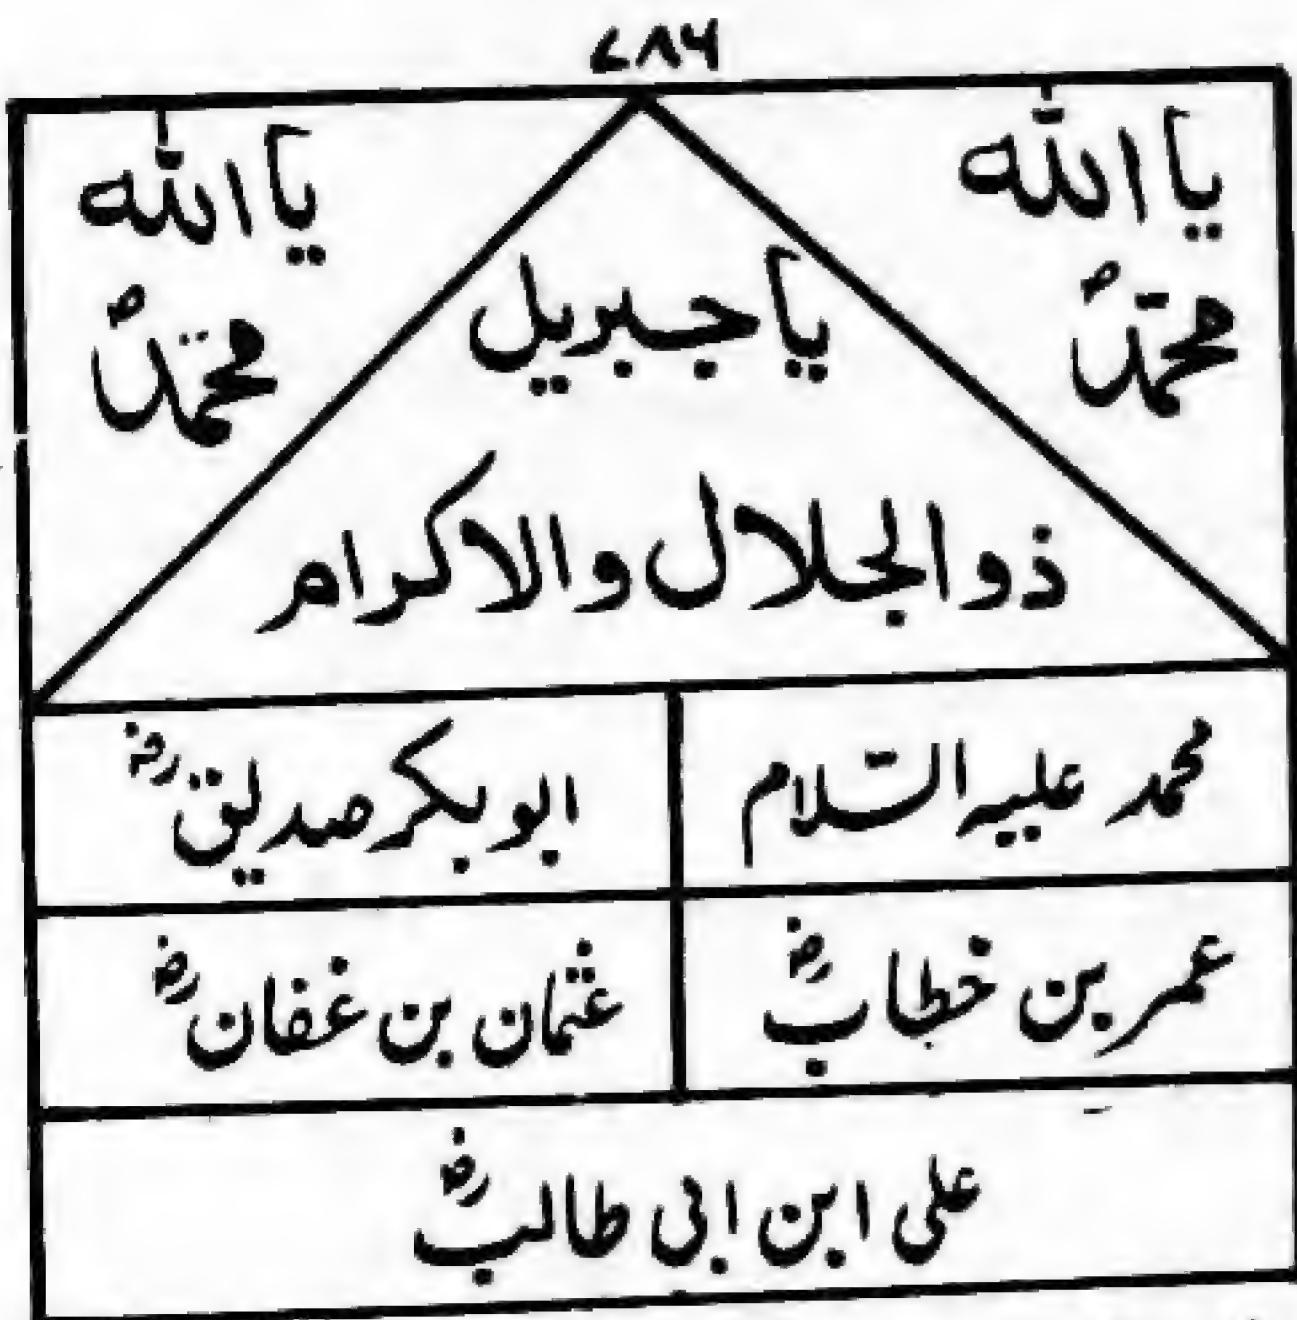 ۷۸۶
یا اللہ
محمدؐ
یا اللہ
محمدؐ
یا جبریل
ذوالجلال والاکرام
محمد علیہ السّلام
ابوبکر صدیق رضؓ
عمر بن خطاب رضؓ
عثمان بن غفان رضؓ
علی ابن ابی طالب رضؓ